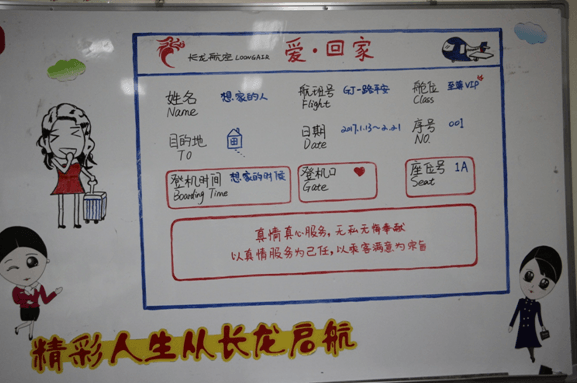 长龙航空 LOONGAIR 爱·回家
姓名 想家的人 航班号 GJ-一路平安 舱位 至尊VIP
Name Flight Class
目的地 日期 2017.1.13~2.21 序号 001
TO Date NO.
登机时间 想家的时候 登机口 座位号 1A
Boarding Time Gate Seat
真情真心服务，无私无悔奉献
以真情服务为己任，以乘客满意为宗旨
精彩人生从长龙启航